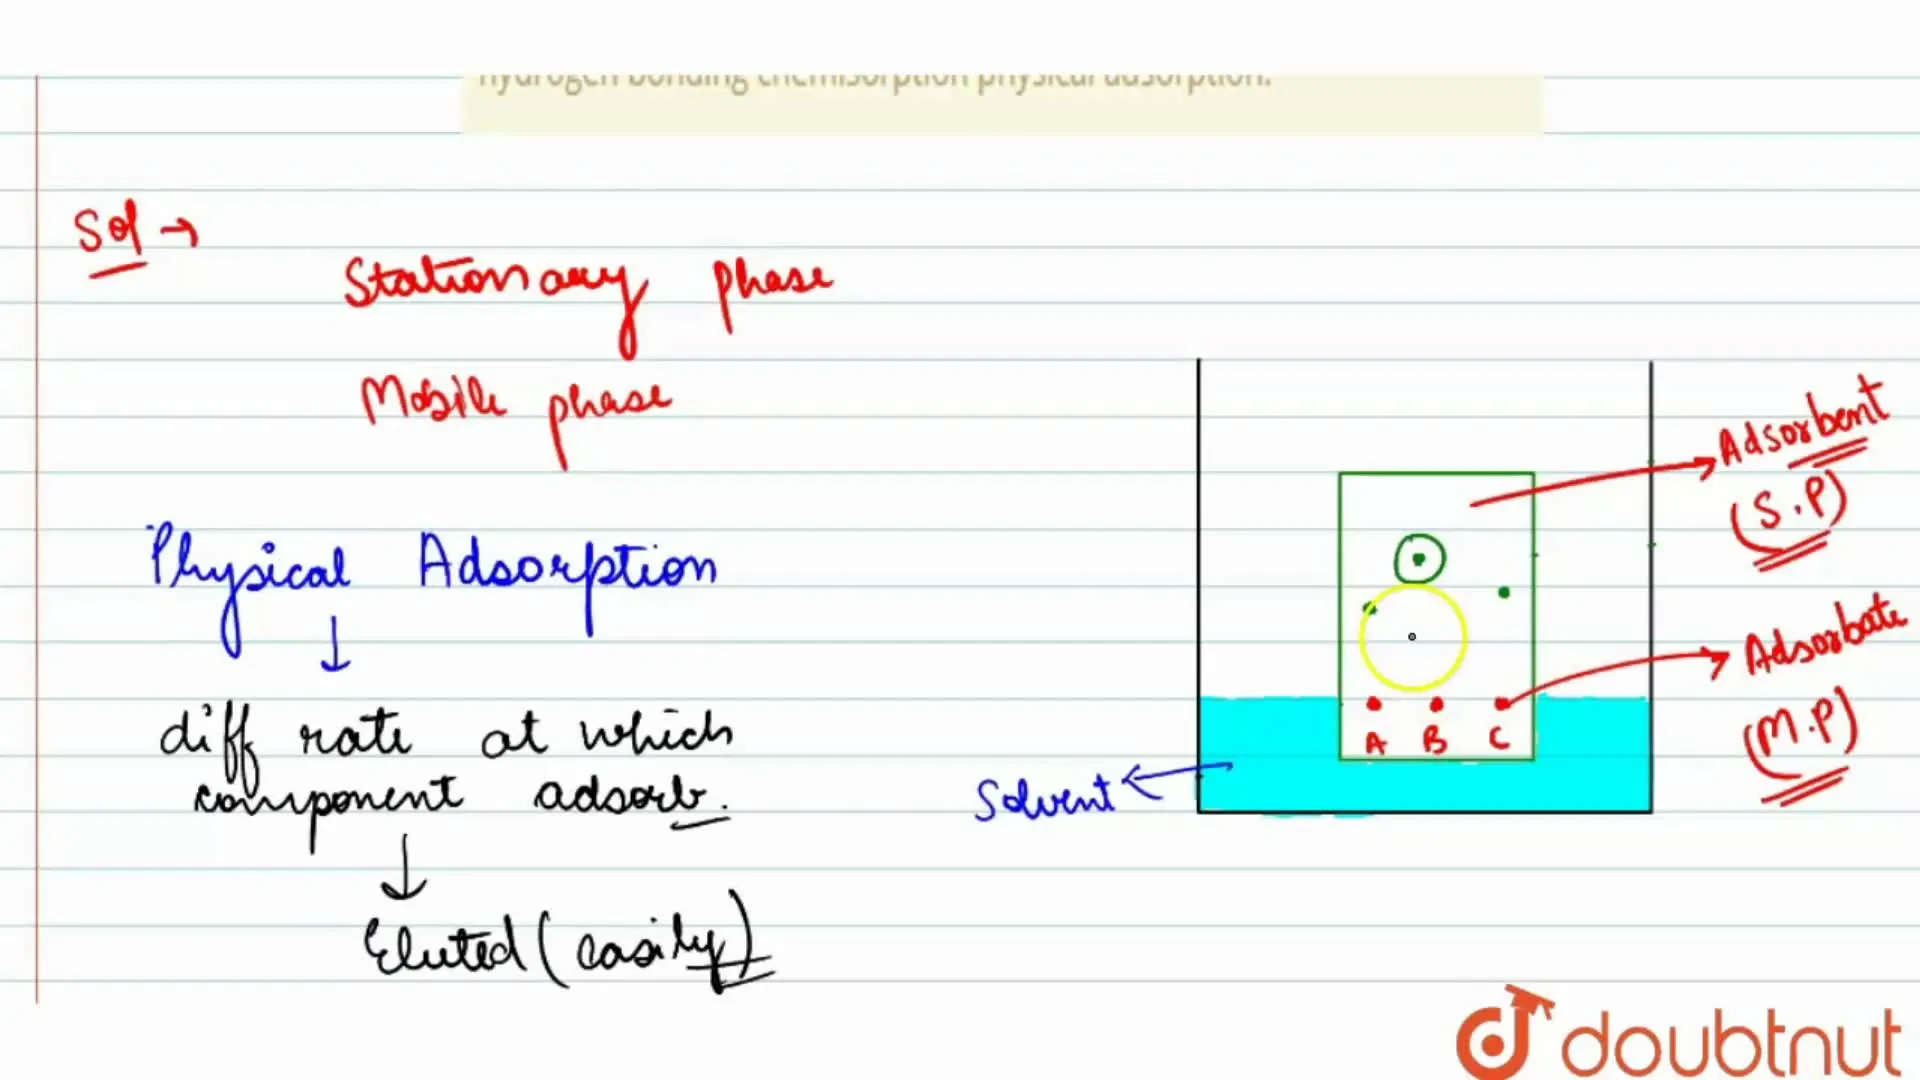 hydrogen bonding chemisorption physical adsorption.
Sol →
Stationary phase
Mobile phase
Physical Adsorption
↓
diff rate at which
component adsorb.
↓
Eluted (easily)
Adsorbent
(S.P)
Adsorbate
(M.P)
A B C
Solvent
doubtnut